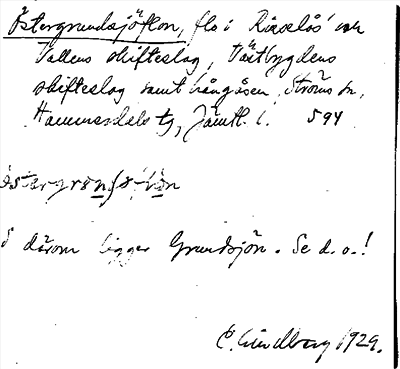 Östergrundsjöflon, flo i Risselås' och
Tullens skifteslag, Täxtbygdens
skifteslag samt Långåsen, Ströms sn,
Hammerdals tg, Jämtl. l. 594
S därom ligger Grundsjön. Se d. o.!
C. Lindberg 1929.